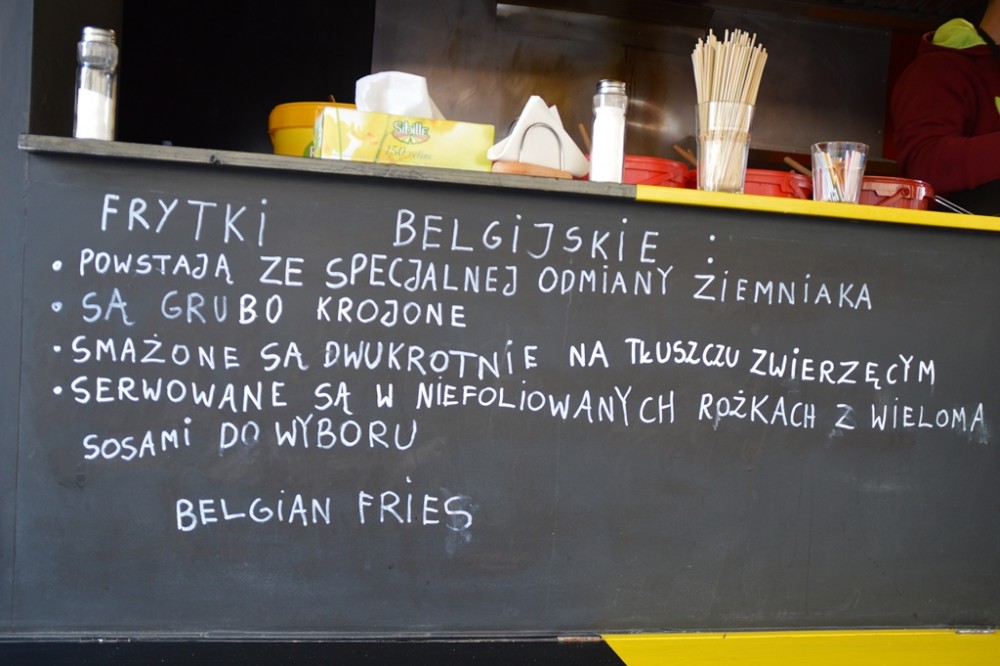 Sibilla
150 velin
FRYTKI BELGIJSKIE :
• POWSTAJĄ ZE SPECJALNEJ ODMIANY ZIEMNIAKA
• SĄ GRUBO KROJONE
• SMAŻONE SĄ DWUKROTNIE NA TŁUSZCZU ZWIERZĘCYM
• SERWOWANE SĄ W NIEFOLIOWANYCH ROŻKACH Z WIELOMA
SOSAMI DO WYBORU
BELGIAN FRIES